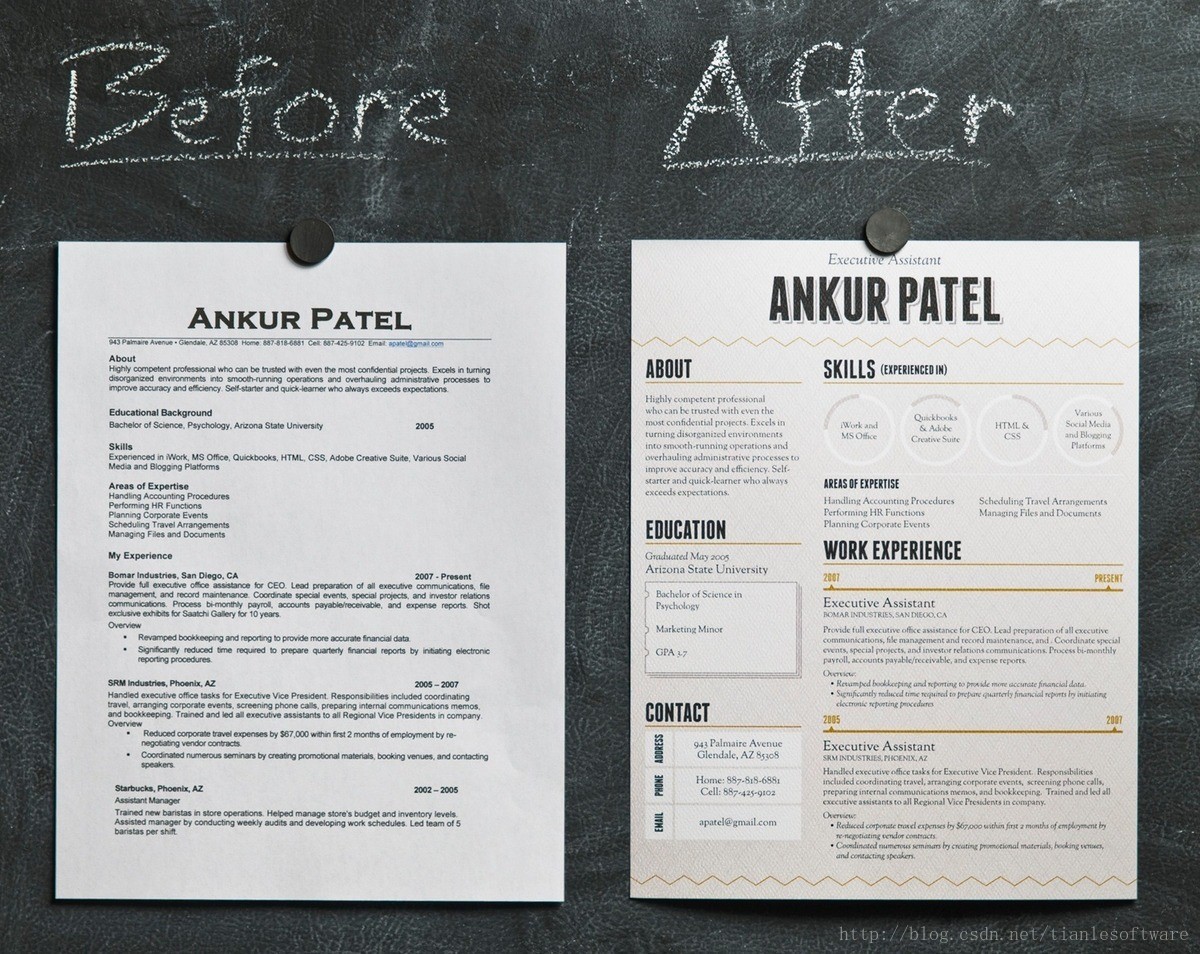 Before
After
ANKUR PATEL
943 Palmaire Avenue • Glendale, AZ 85308 Home: 887-818-6881 Cell: 887-425-9102 Email: apatel@gmail.com
About
Highly competent professional who can be trusted with even the most confidential projects. Excels in turning
disorganized environments into smooth-running operations and overhauling administrative processes to
improve accuracy and efficiency. Self-starter and quick-learner who always exceeds expectations.
Educational Background
Bachelor of Science, Psychology, Arizona State University 2005
Skills
Experienced in iWork, MS Office, Quickbooks, HTML, CSS, Adobe Creative Suite, Various Social
Media and Blogging Platforms
Areas of Expertise
Handling Accounting Procedures
Performing HR Functions
Planning Corporate Events
Scheduling Travel Arrangements
Managing Files and Documents
My Experience
Bomar Industries, San Diego, CA 2007 - Present
Provide full executive office assistance for CEO. Lead preparation of all executive communications, file
management, and record maintenance. Coordinate special events, special projects, and investor relations
communications. Process bi-monthly payroll, accounts payable/receivable, and expense reports. Shot
exclusive exhibits for Saatchi Gallery for 10 years.
Overview
▪ Revamped bookkeeping and reporting to provide more accurate financial data.
▪ Significantly reduced time required to prepare quarterly financial reports by initiating electronic
reporting procedures.
SRM Industries, Phoenix, AZ 2005 – 2007
Handled executive office tasks for Executive Vice President. Responsibilities included coordinating
travel, arranging corporate events, screening phone calls, preparing internal communications memos,
and bookkeeping. Trained and led all executive assistants to all Regional Vice Presidents in company.
Overview
▪ Reduced corporate travel expenses by $67,000 within first 2 months of employment by re-
negotiating vendor contracts.
▪ Coordinated numerous seminars by creating promotional materials, booking venues, and contacting
speakers.
Starbucks, Phoenix, AZ 2002 – 2005
Assistant Manager
Trained new baristas in store operations. Helped manage store's budget and inventory levels.
Assisted manager by conducting weekly audits and developing work schedules. Led team of 5
baristas per shift.
Executive Assistant
ANKUR PATEL
ABOUT
Highly competent professional
who can be trusted with even the
most confidential projects. Excels in
turning disorganized environments
into smooth-running operations and
overhauling administrative processes to
improve accuracy and efficiency. Self-
starter and quick-learner who always
exceeds expectations.
EDUCATION
Graduated May 2005
Arizona State University
Bachelor of Science in
Psychology
Marketing Minor
GPA 3.7
CONTACT
ADDRESS
943 Palmaire Avenue
Glendale, AZ 85308
PHONE
Home: 887-818-6881
Cell: 887-425-9102
EMAIL
apatel@gmail.com
SKILLS (EXPERIENCED IN)
iWork and
MS Office
Quickbooks
& Adobe
Creative Suite
HTML &
CSS
Various
Social Media
and Blogging
Platforms
AREAS OF EXPERTISE
Handling Accounting Procedures
Performing HR Functions
Planning Corporate Events
Scheduling Travel Arrangements
Managing Files and Documents
WORK EXPERIENCE
2007 PRESENT
Executive Assistant
BOMAR INDUSTRIES, SAN DIEGO, CA
Provide full executive office assistance for CEO. Lead preparation of all executive
communications, file management and record maintenance, and . Coordinate special
events, special projects, and investor relations communications. Process bi-monthly
payroll, accounts payable/receivable, and expense reports.
Overview:
• Revamped bookkeeping and reporting to provide more accurate financial data.
• Significantly reduced time required to prepare quarterly financial reports by initiating
electronic reporting procedures
2005 2007
Executive Assistant
SRM INDUSTRIES, PHOENIX, AZ
Handled executive office tasks for Executive Vice President. Responsibilities
included coordinating travel, arranging corporate events, screening phone calls,
preparing internal communications memos, and bookkeeping. Trained and led all
executive assistants to all Regional Vice Presidents in company.
Overview:
• Reduced corporate travel expenses by $67,000 within first 2 months of employment by
re-negotiating vendor contracts.
• Coordinated numerous seminars by creating promotional materials, booking venues,
and contacting speakers.
http://blog.csdn.net/tianlesoftware